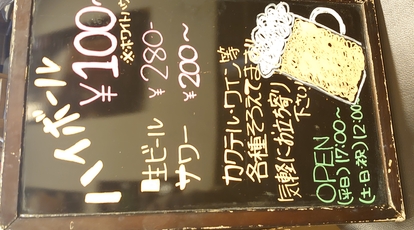 ハイボール
¥100〜
※ホワイト
生ビール ¥280-
サワー ¥200〜
カクテル・ワイン等
各種そろえてます!!
気軽にお立ち寄り
下さい
OPEN
(平日)17:00〜
(土・日・祝)12:00